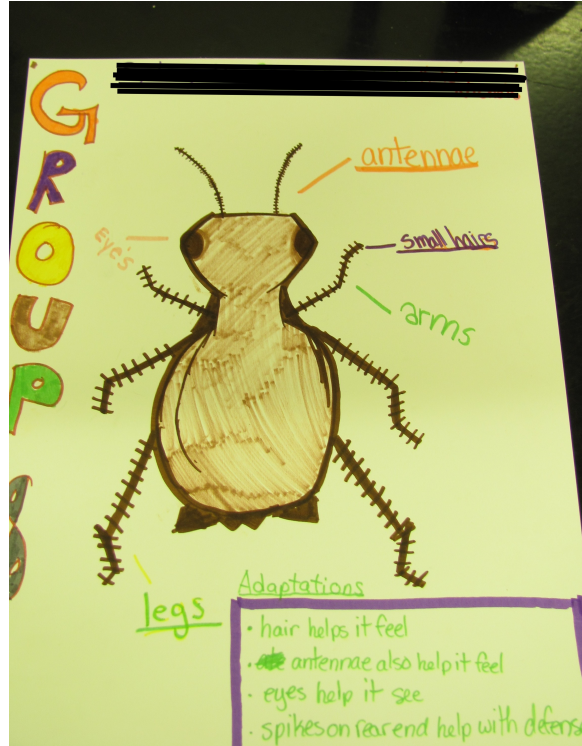 GROUP 8
antennae
Eye's
small hairs
arms
legs
Adaptations
• hair helps it feel
• antennae also help it feel
• eyes help it see
• spikes on rear end help with defense